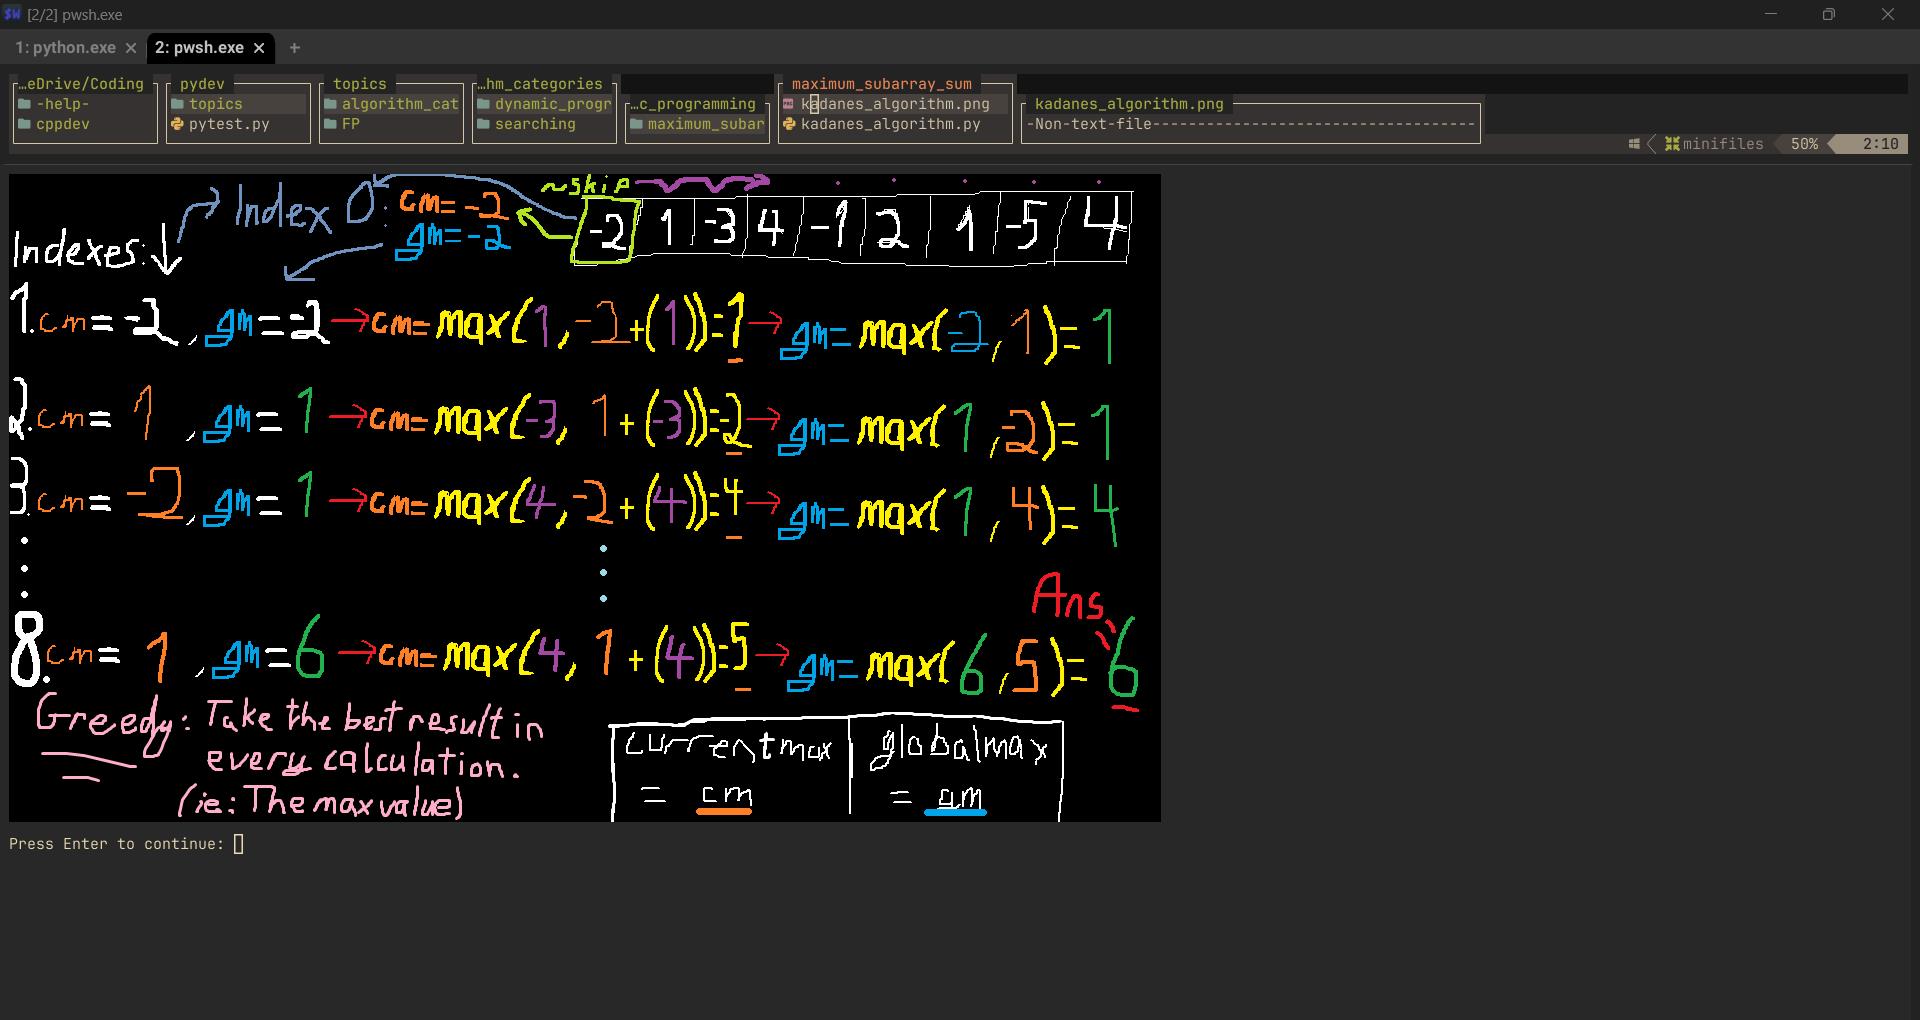 [2/2] pwsh.exe
1: python.exe × 2: pwsh.exe × +
…eDrive/Coding
-help-
cppdev
pydev
topics
pytest.py
topics
algorithm_cat
FP
…hm_categories
dynamic_progr
searching
…c_programming
maximum_subar
maximum_subarray_sum
kadanes_algorithm.png
kadanes_algorithm.py
kadanes_algorithm.png
-Non-text-file------------------------------------
minifiles 50% 2:10
~skip
Index 0: cm=-2
gm=-2
-2 1 -3 4 -1 2 1 -5 4
Indexes:
1. cm = -2, gm = -2 → cm= max(1, -2+(1))=1 → gm= max(-2, 1)= 1
2. cm = 1, gm = 1 → cm= max(-3, 1+(-3))=-2 → gm= max(1, -2)= 1
3. cm = -2, gm = 1 → cm= max(4, -2+(4))=4 → gm= max(1, 4)= 4
Ans
8. cm = 1, gm = 6 → cm= max(4, 1+(4))=5 → gm= max(6, 5)= 6
Greedy: Take the best result in
every calculation.
(ie: The max value)
currentmax
= cm
globalmax
= gm
Press Enter to continue: